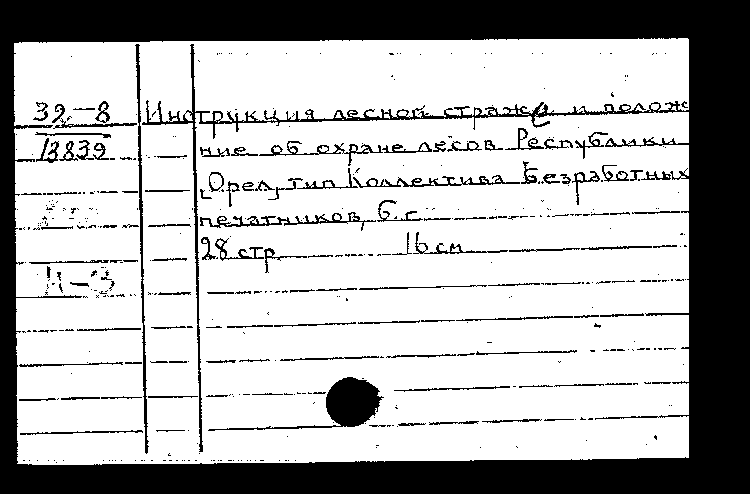 32-8 Инструкция лесной стражe и полож
13839 ние об охране лесов Республики
[Орел] тип Коллектива Безработных
печатников, б. г.
28 стр. 16 см
И-3